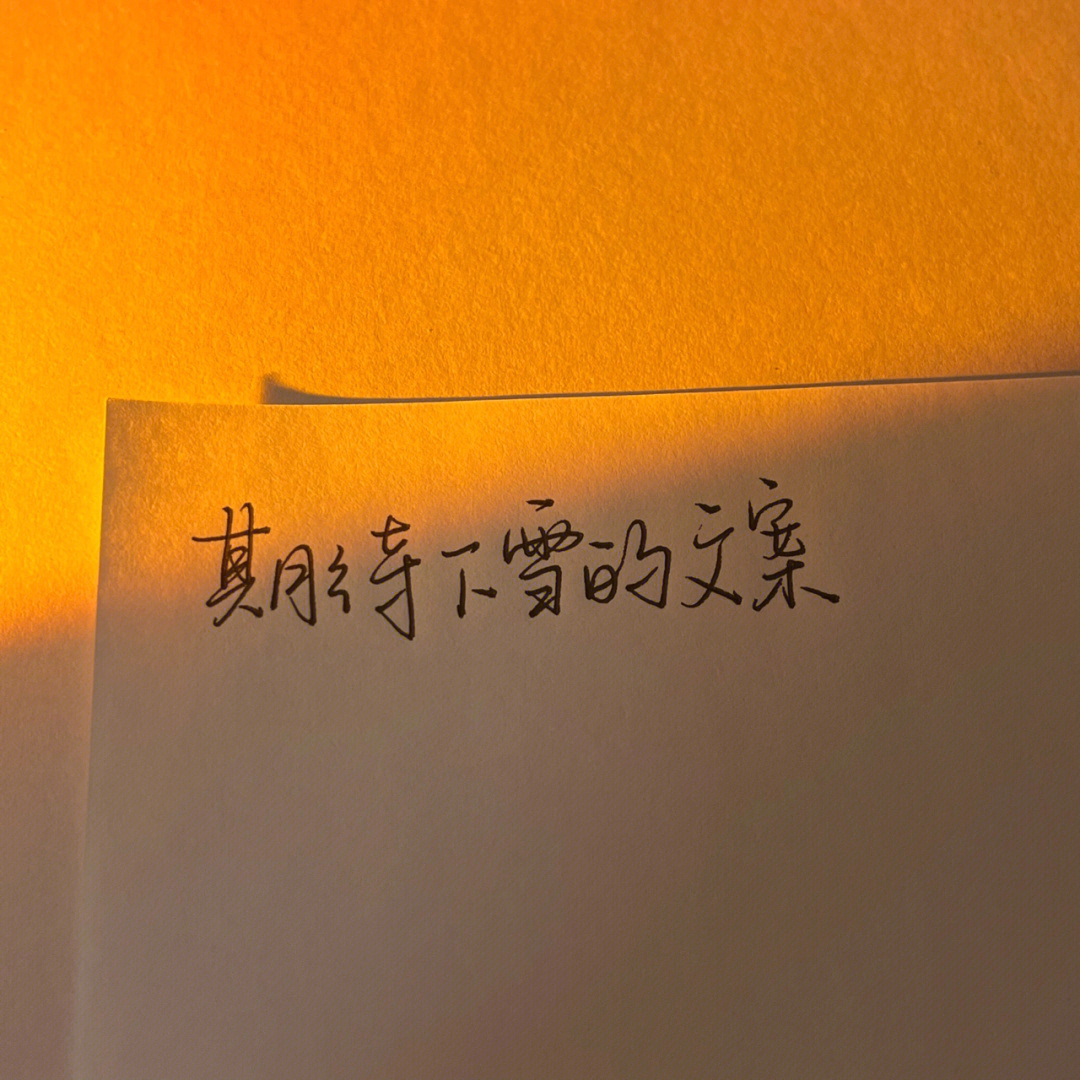 期待下雪的文案